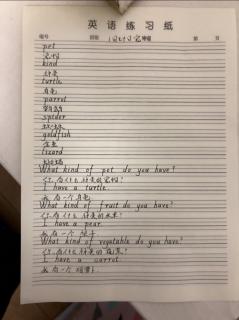 英语练习纸
编号
班级
第 页
pet
宠物
kind
种类
turtle
乌龟
parrot
鹦鹉
spider
蜘蛛
goldfish
金鱼
lizard
蜥蜴
What kind of pet do you have?
你有什么种类的宠物?
I have a turtle.
我有一个乌龟
What kind of fruit do you have?
你有什么种类的水果?
I have a pear.
我有一个梨子
What kind of vegetable do you have?
你有什么种类的蔬菜?
I have a carrot.
我有一个胡萝卜